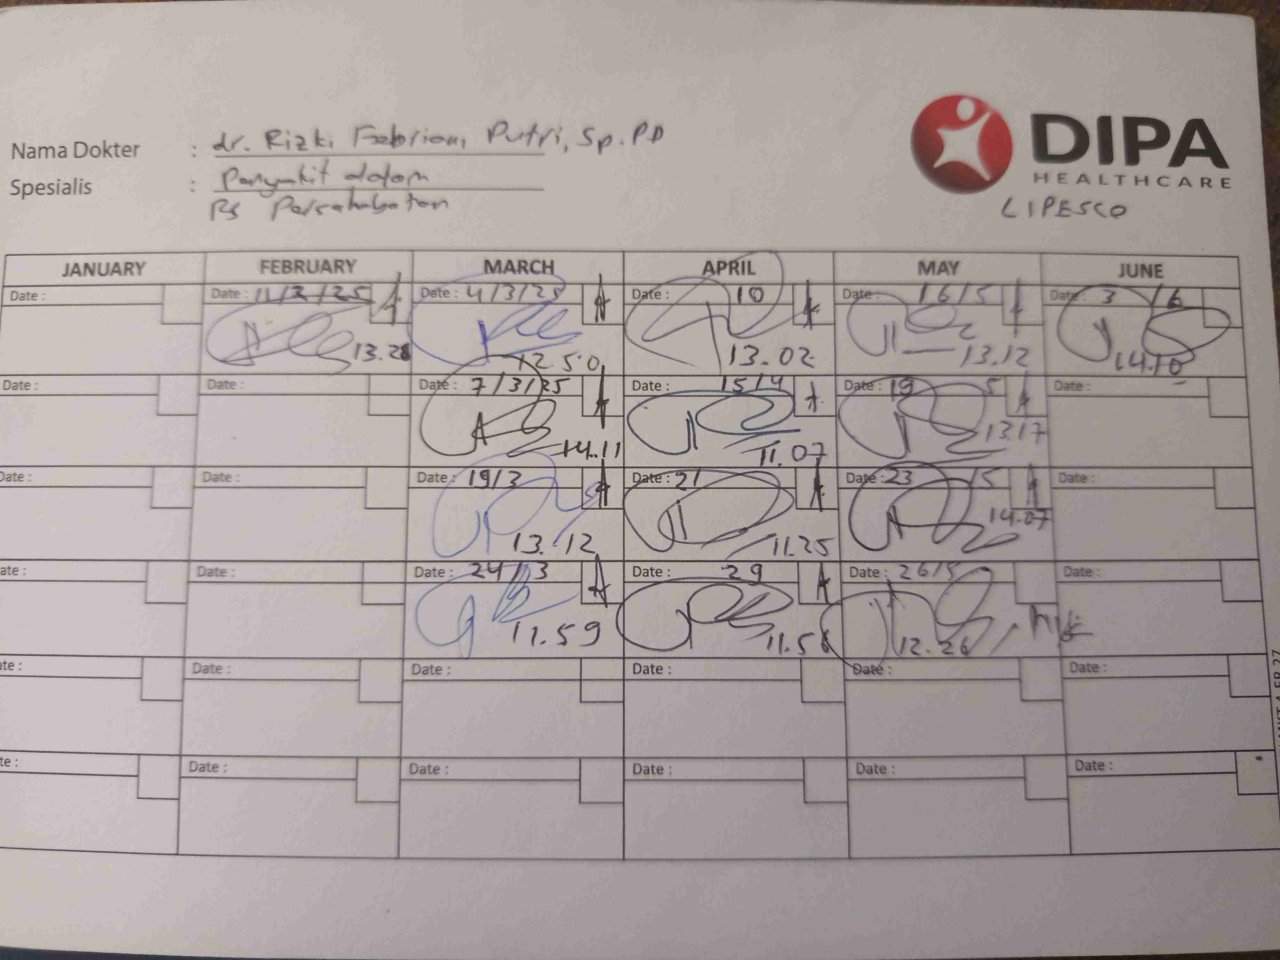 DIPA
HEALTHCARE
LIPESCO
Nama Dokter : dr. Rizki Febriani Putri, Sp.PD
Spesialis : Penyakit dalam
RS Persahabatan
JANUARY FEBRUARY MARCH APRIL MAY JUNE
Date : Date : 11/2/25 Date : 4/3/25 Date : 10 Date : 16/5 Date : 3/6
13.28 12.50 13.02 13.12 14.10
Date : Date : Date : 7/3/25 Date : 15/4 Date : 19 5 Date :
14.11 11.07 13.17
Date : Date : Date : 19/3 Date : 21 Date : 23/5 Date :
13.12 11.25 14.07
ate : Date : Date : 24/3 Date : 29 Date : 26/5 Date :
11.59 11.56 12.26
te : Date : Date : Date : Date : Date :
te : Date : Date : Date : Date : Date :